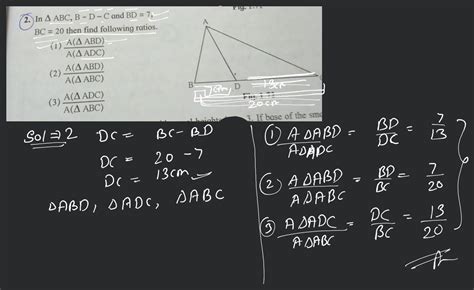 2. In Δ ABC, B - D - C and BD = 7,
BC = 20 then find following ratios.
(1) A(Δ ABD)
A(Δ ADC)
(2) A(Δ ABD)
A(Δ ABC)
(3) A(Δ ADC)
A(Δ ABC)
A
B
D
13cm
7cm
20cm
3. If base of the
Sol ⇒ 2
DC = BC - BD
DC = 20 - 7
DC = 13cm
ΔABD, ΔADC, ΔABC
① AΔABD / AΔADC = BD / DC = 7 / 13
② AΔABD / AΔABC = BD / BC = 7 / 20
③ AΔADC / AΔABC = DC / BC = 13 / 20